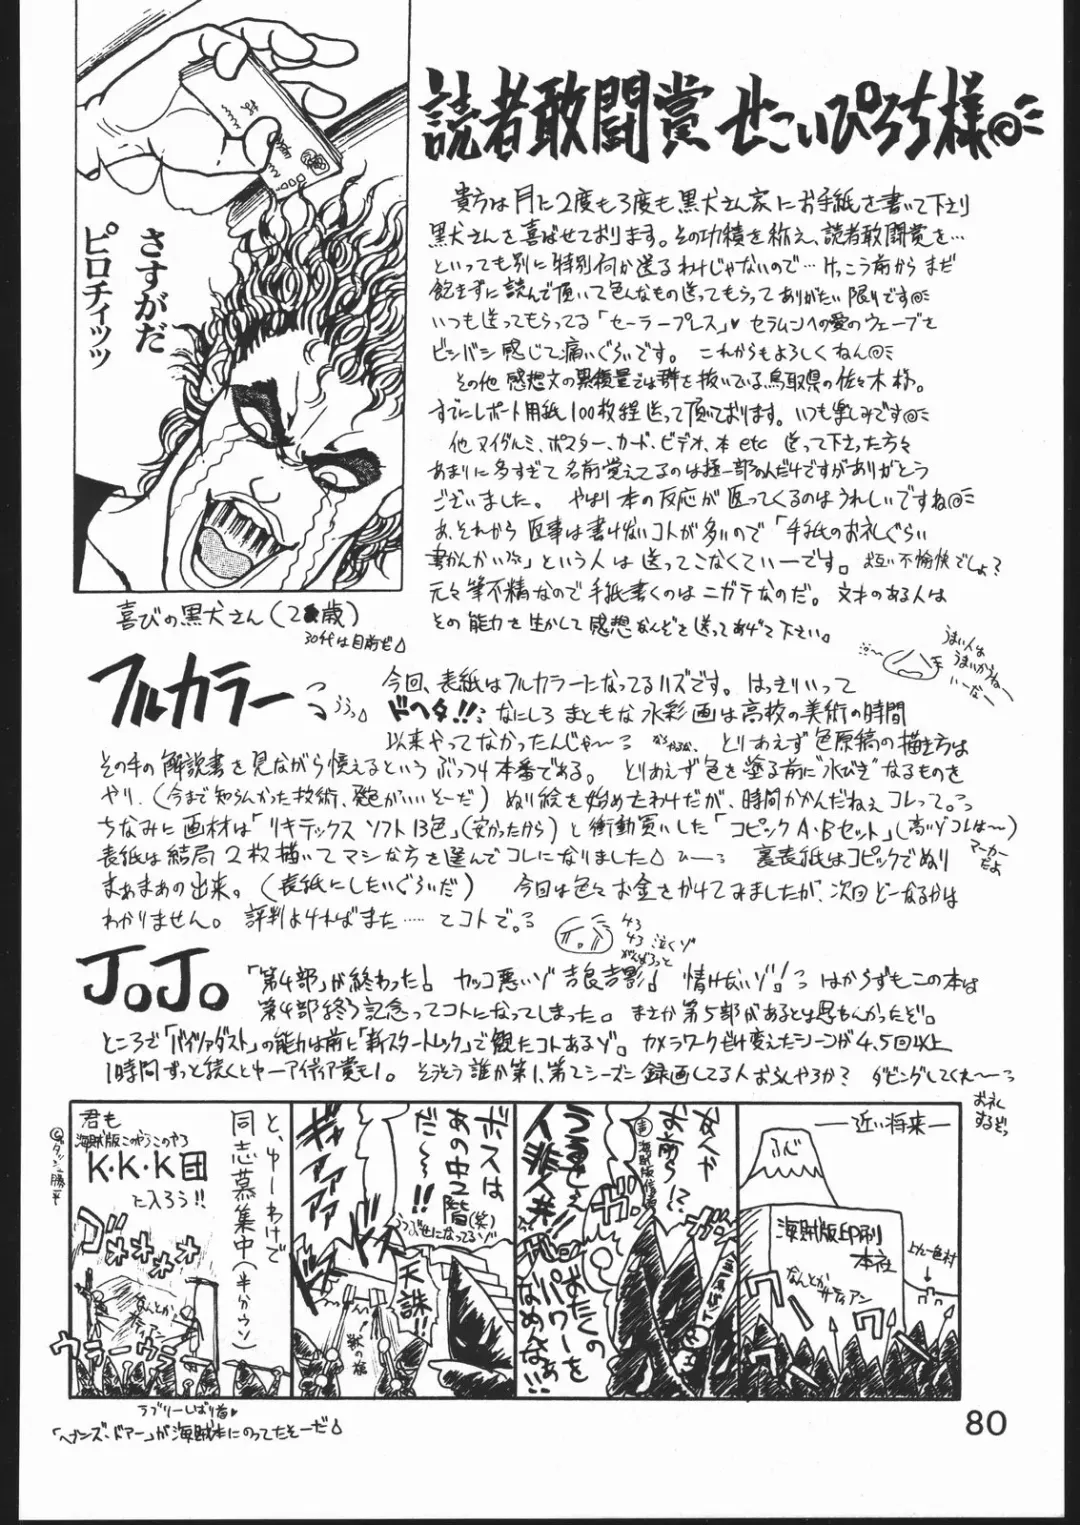 さすがだ
ピロチィッッ
喜びの黒犬さん(2歳)
30代は目前だ
読者敢闘賞 せこいぴろち様
貴方は月に2度も3度も黒犬さん家にお手紙を書いて下さり
黒犬さんを喜ばせております。その功積を称え、読者敢闘賞を…
といっても別に特別何か送るわけじゃないので…けっこう前からまだ
飽きずに読んで頂いて色んなもの送ってもらってありがたい限りです
いつも送ってもらってる「セーラープレス」♥セラムンへの愛のウェーブを
ビンバシ感じて痛いぐらいです。これからもよろしくねん
その他感想文の累積量では群を抜いている鳥取県の佐々木様。
すでにレポート用紙100枚程送って頂いております。いつも楽しみです
他ヌイグルミ、ポスター、カード、ビデオ、本etc送って下さった方々
あまりに多すぎて名前覚えてるのは極一部の人だけですがありがとう
ございました。やはり本の反応が返ってくるのはうれしいですね
あ、それから返事は書けないコトが多いので「手紙のお礼ぐらい
書かんかい」という人は送ってこなくていーです。お互い不愉快でしょ?
元々筆不精なので手紙書くのはニガテなのだ。文才のある人は
その能力を生かして感想なんぞを送ってあげて下さい。
うまい人は
うまいからねー
いーなー
フルカラー
今回、表紙はフルカラーになってるハズです。はっきりいって
ドヘタ!!なにしろまともな水彩画は高校の美術の時間
以来やってなかったんじゃ〜 とりあえず色原稿の描き方は
その手の解説書を見ながら憶えるというぶっつけ本番である。とりあえず色を塗る前に"水びき"なるものを
やり、(今まで知らんかった技術、発色がいいそーだ)ぬり絵を始めたわけだが、時間かかんだねぇコレって。
ちなみに画材は「リキテックス ソフト13色」(安かったから)と衝動買いした「コピックA・Bセット」(高いゾコレは〜)
マーカーだよ
表紙は結局2枚描いてマシな方を選んでコレになりました ひーっ 裏表紙はコピックでぬり
まぁまぁの出来。(表紙にしたいぐらいだ) 今回は色々お金をかけてみましたが、次回どーなるかは
わかりません。評判よければまた……てコトで。
泣くゾ
JoJo
「第4部」が終わった! カッコ悪いゾ吉良吉影! 情けないゾ! はからずもこの本は
第4部終了記念ってコトになってしまった。まさか第5部があるとは思わんかったぞ。
ところで「バイツァダスト」の能力は前に「新スタートレック」で観たコトあるゾ。カメラワークだけ変えたシーンが4,5回以上
1時間ずっと続くとゆーアイディア賞もの。そうそう誰か第1、第2シーズン録画してる人おらんやろか? ダビングしてくれ〜
お礼するぞっ
―近い将来―
ふじ
海賊版印刷
本社
上九一色村
なんとか
サティアン
ワー
ワー
なんや
お前ら!?
うるせぇ
人非人共!!
おたくの
パワーを
なめんなぁ!!
ボスは
あの中2階(笑)
だ〜!!
うつぶせになってるゾ
天誅!!
獣の槍
ギャアアアア
と、ゆーわけで
同志募集中(半分ウソ)
君も
海賊版このやろこのやろ
K・K・K団
に入ろう!!
ヴォオオオ
なんとか
サティアン
ウラーウラー
ラブリーしばり首♥
「ヘブンズ・ドアー」が海賊本にのってたそーだ
80